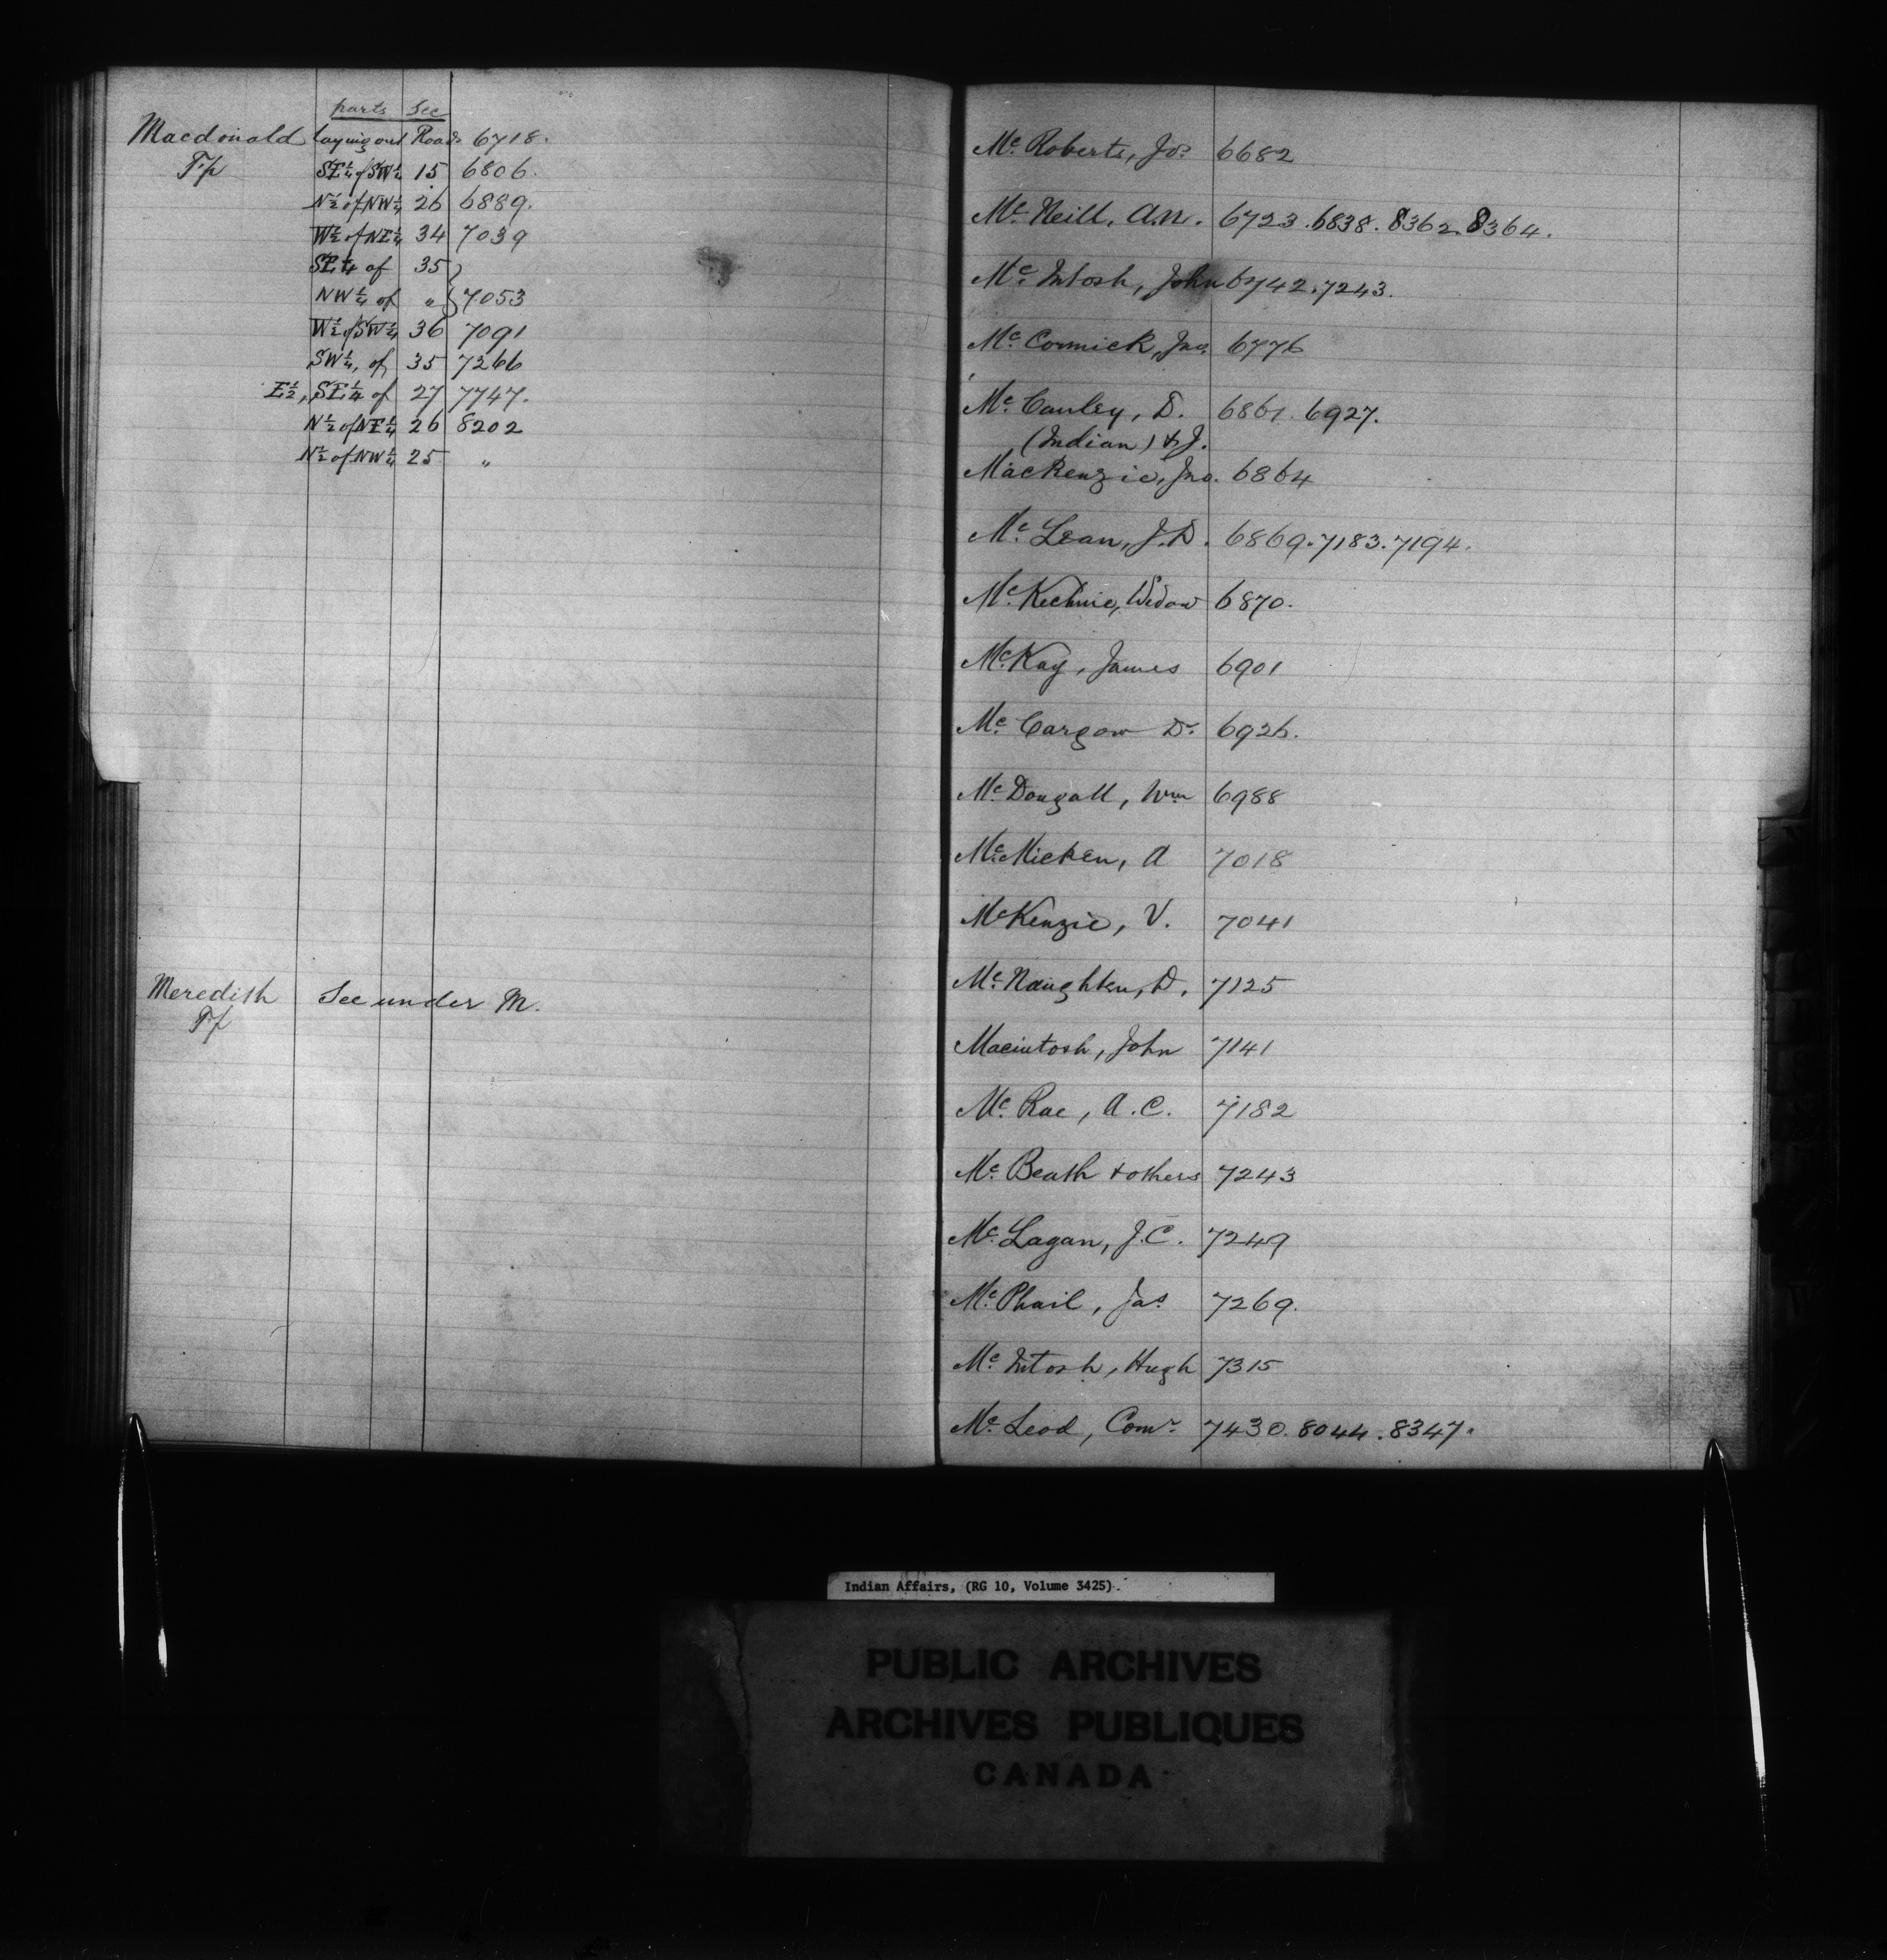 parts Sec
Macdonald laying out Roads 6718.
Tp SE¼ of SW¼ 15 6806.
N½ of NW¼ 26 6889.
W½ of NE¼ 34 7039
SE¼ of 35 }
NW¼ of " } 7053
W½ of SW¼ 36 7091
SW¼, of 35 7266
E½, SE¼ of 27 7747.
N½ of NE¼ 26 8202
N½ of NW¼ 25 "
Meredith See under M.
Tp
Mc Roberts, Jos 6682
Mc Neill, A.N. 6723.6838.8362.8364.
Mc Intosh, John 6742.7243.
Mc Cormick, Jno. 6776
Mc Cauley, D. 6861. 6927.
(Indian) & J.
MacKenzie, Jno. 6864
Mc Lean, J.D. 6869.7183.7194.
Mc Kechnie, Widow 6870.
Mc Kay, James 6901
Mc Cargow Dr. 6926.
Mc Dougall, Wm 6988
Mc Micken, A 7018
McKenzie, V. 7041
Mc Naughten, D. 7125
Macintosh, John 7141
Mc Rae, A.C. 7182
Mc Beath & others 7243
Mc Lagan, J.C. 7249
Mc Phail, Jas 7269.
Mc Intosh, Hugh 7315
Mc Leod, Comr 7430.8044.8347.
Indian Affairs, (RG 10, Volume 3425).
PUBLIC ARCHIVES
ARCHIVES PUBLIQUES
CANADA